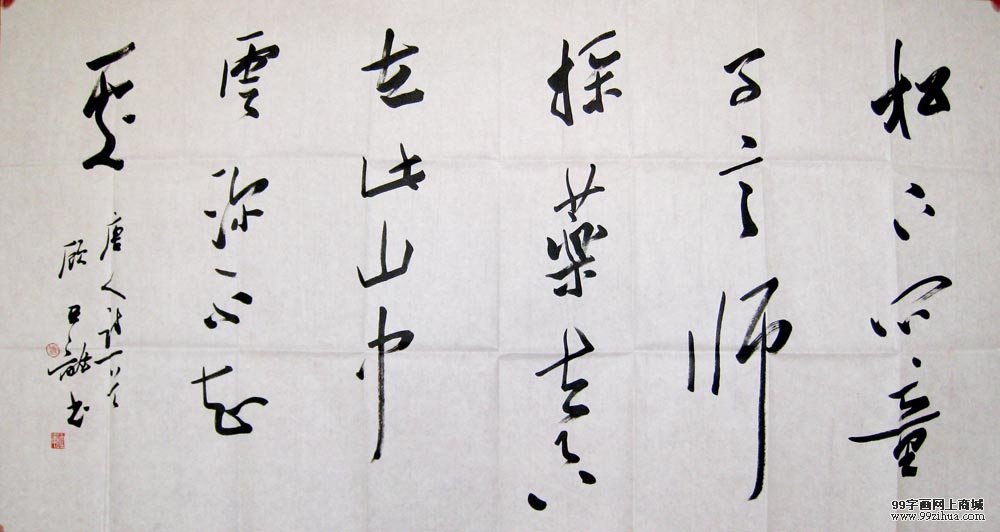 松下问童
子言师
採藥去只
在此山中
雲深不知
處
唐人诗一首
顾 书
99字画网上商城
www.99zihua.com